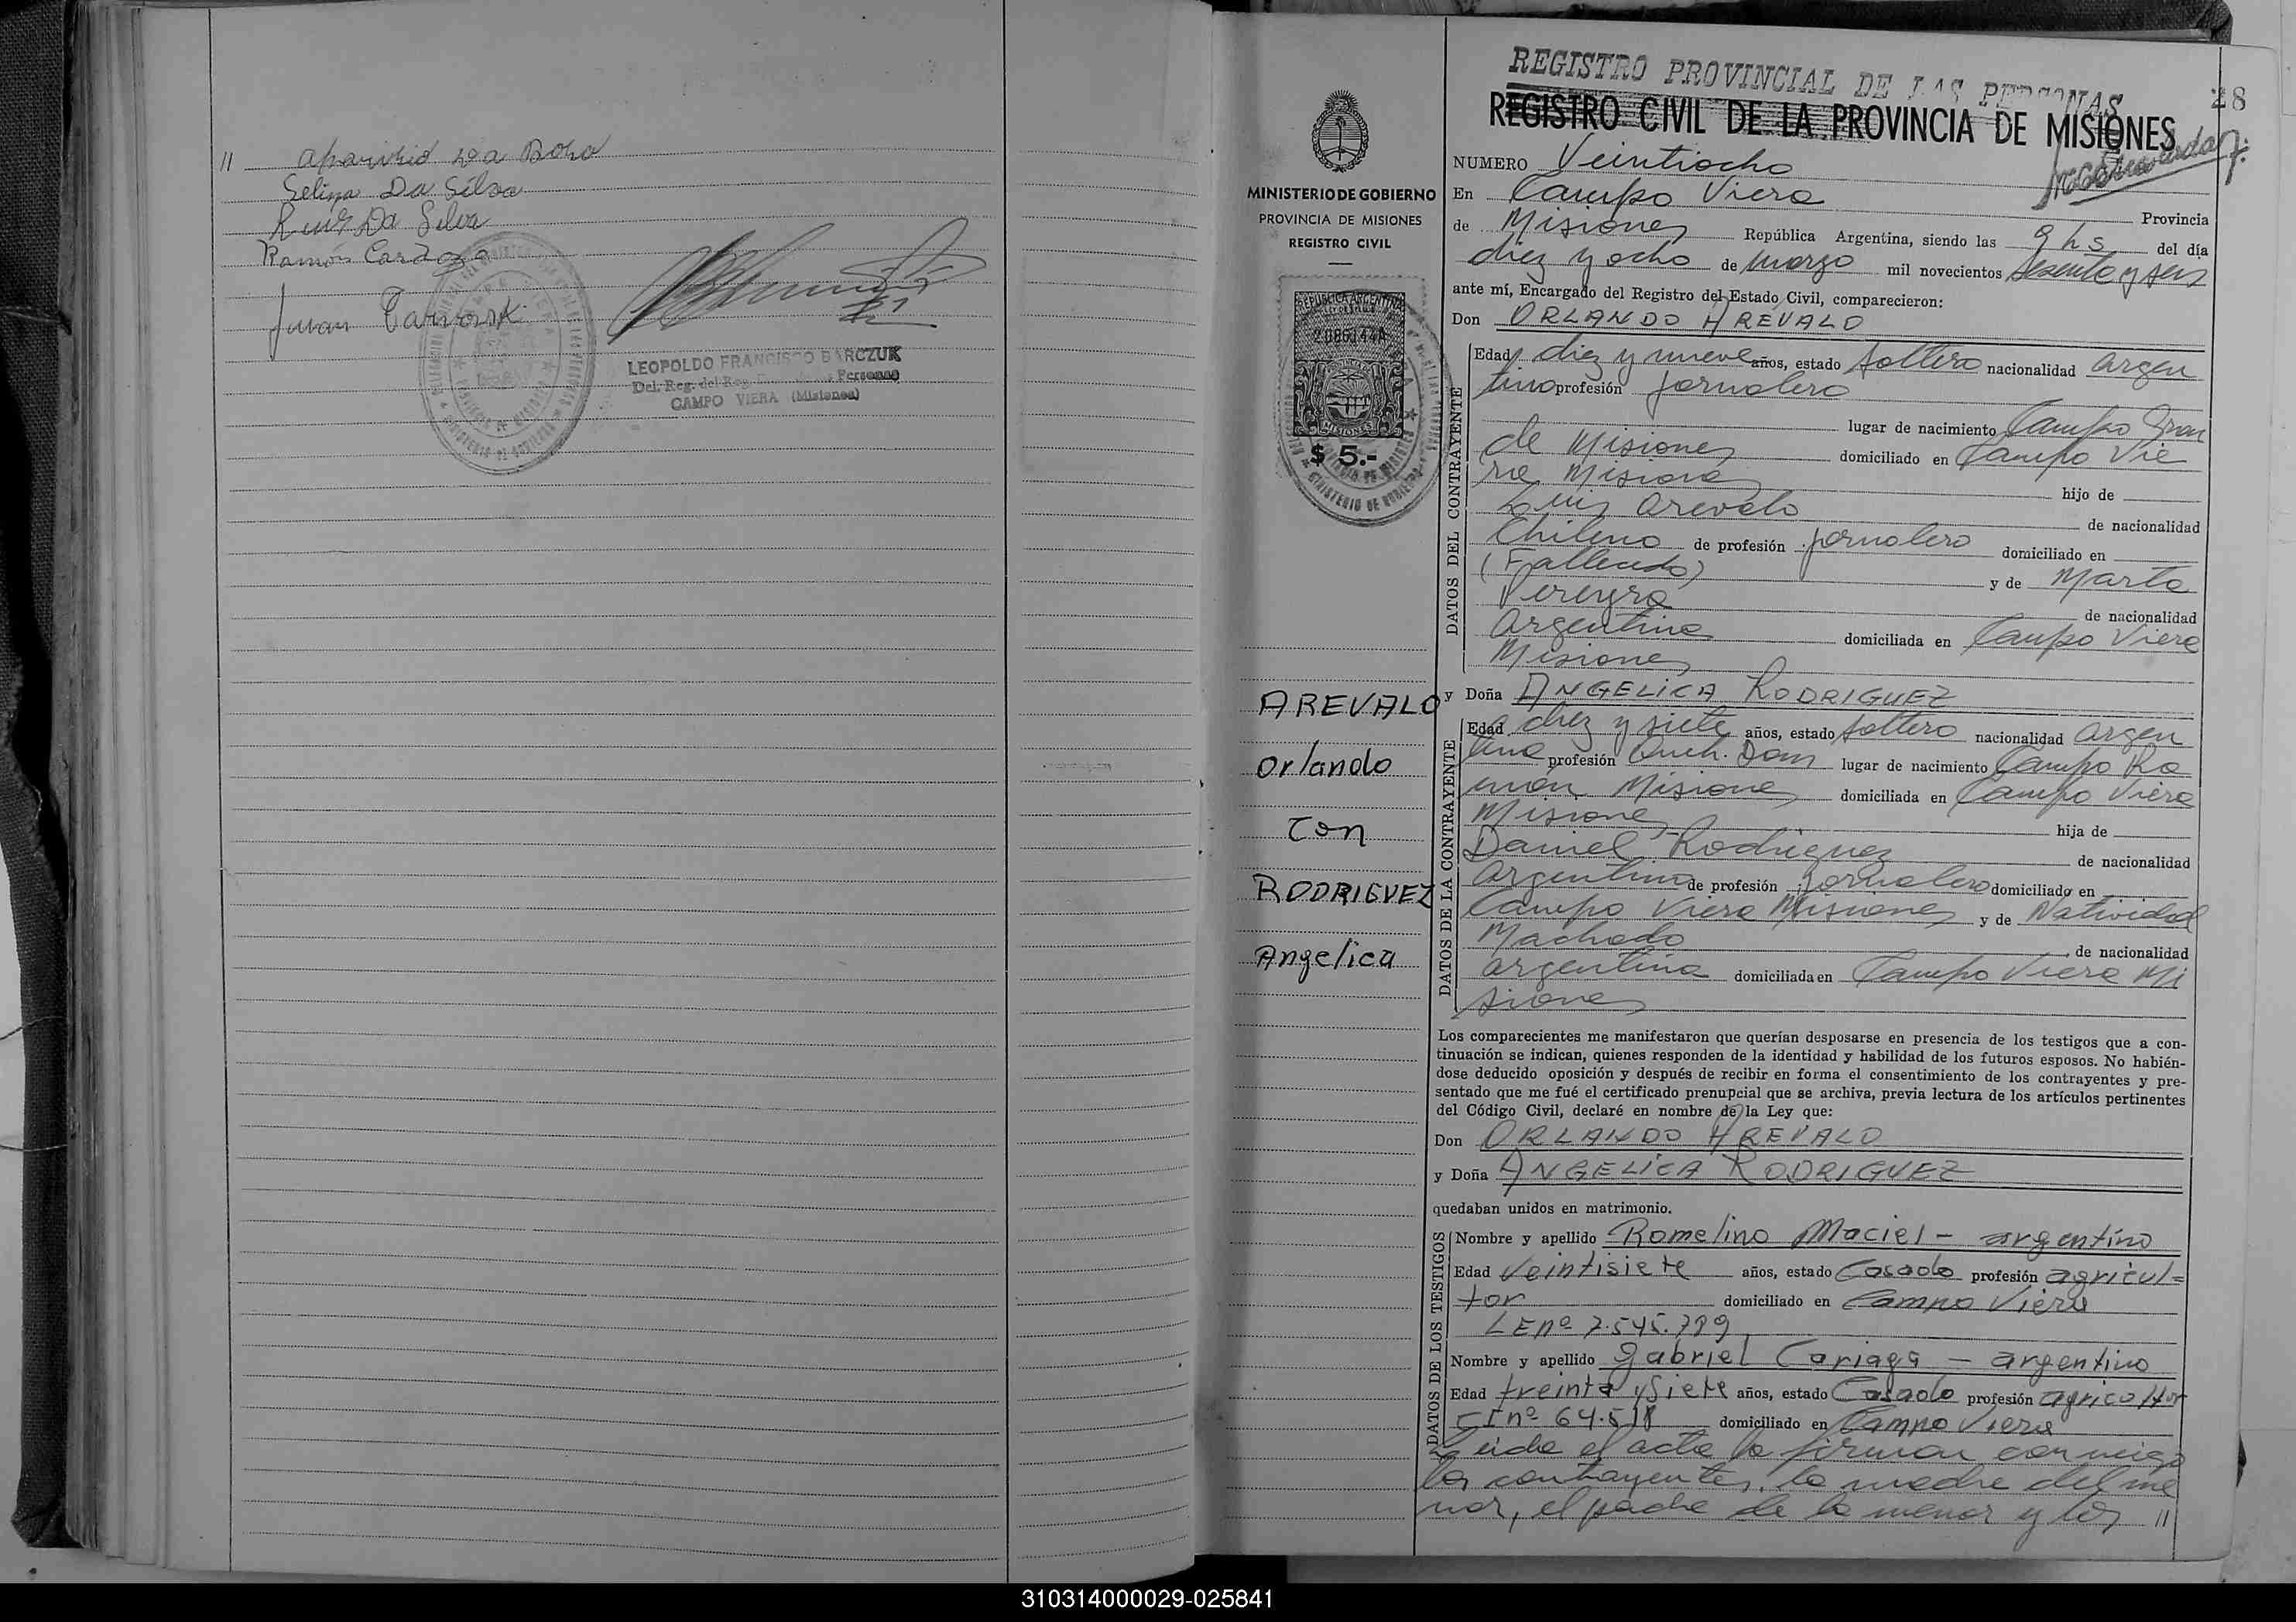 //
Selina Da Silva
Luis Da Silva
Ramón Cardozo
Juan
LEOPOLDO FRANCISCO BARCZUK
Del. Reg. del Personas
CAMPO VIERA (Misiones)
REGISTRO PROVINCIAL DE LAS PERSONAS
28
REGISTRO CIVIL DE LA PROVINCIA DE MISIONES
MINISTERIO DE GOBIERNO
PROVINCIA DE MISIONES
REGISTRO CIVIL
REPUBLICA ARGENTINA
MISIONES
$ 5.-
AREVALO
Orlando
Con
RODRIGUEZ
Angelica
NUMERO Veintiocho
En Campo Viera Provincia
de Misiones República Argentina, siendo las 9 hs del día
diez y ocho de marzo mil novecientos sesenta y seis
ante mí, Encargado del Registro del Estado Civil, comparecieron:
Don ORLANDO AREVALO
DATOS DEL CONTRAYENTE
Edad diez y nueve años, estado soltero nacionalidad argen
tino profesión jornalero
lugar de nacimiento Campo Gran
de Misiones domiciliado en Campo Vie
ra Misiones hijo de
Luis Arevalo de nacionalidad
Chileno de profesión jornalero domiciliado en
(Fallecido) y de Marta
Pereyra de nacionalidad
Argentina domiciliada en Campo Viera
Misiones
y Doña ANGELICA RODRIGUEZ
DATOS DE LA CONTRAYENTE
Edad diez y siete años, estado soltera nacionalidad argen
tina profesión Queh. Dom lugar de nacimiento Campo Ra
món Misiones domiciliada en Campo Viera
Misiones hija de
Daniel Rodriguez de nacionalidad
Argentino de profesión jornalero domiciliado en
Campo Viera Misiones y de Natividad
Machado de nacionalidad
argentina domiciliada en Campo Viera Mi
siones
Los comparecientes me manifestaron que querían desposarse en presencia de los testigos que a con-
tinuación se indican, quienes responden de la identidad y habilidad de los futuros esposos. No habién-
dose deducido oposición y después de recibir en forma el consentimiento de los contrayentes y pre-
sentado que me fué el certificado prenupcial que se archiva, previa lectura de los artículos pertinentes
del Código Civil, declaré en nombre de la Ley que:
Don ORLANDO AREVALO
y Doña ANGELICA RODRIGUEZ
quedaban unidos en matrimonio.
DATOS DE LOS TESTIGOS
Nombre y apellido Romelino Maciel - argentino
Edad Veintisiete años, estado Casado profesión agricul=
tor domiciliado en Campo Viera
LE nº 7.545.789
Nombre y apellido Gabriel Cariaga - argentino
Edad treinta y siete años, estado Casado profesión agricultor
CI nº 64.518 domiciliado en Campo Viera
Leida el acta la firman conmigo
los contrayentes, la madre del me
nor, el padre de la menor y los //
310314000029-025841